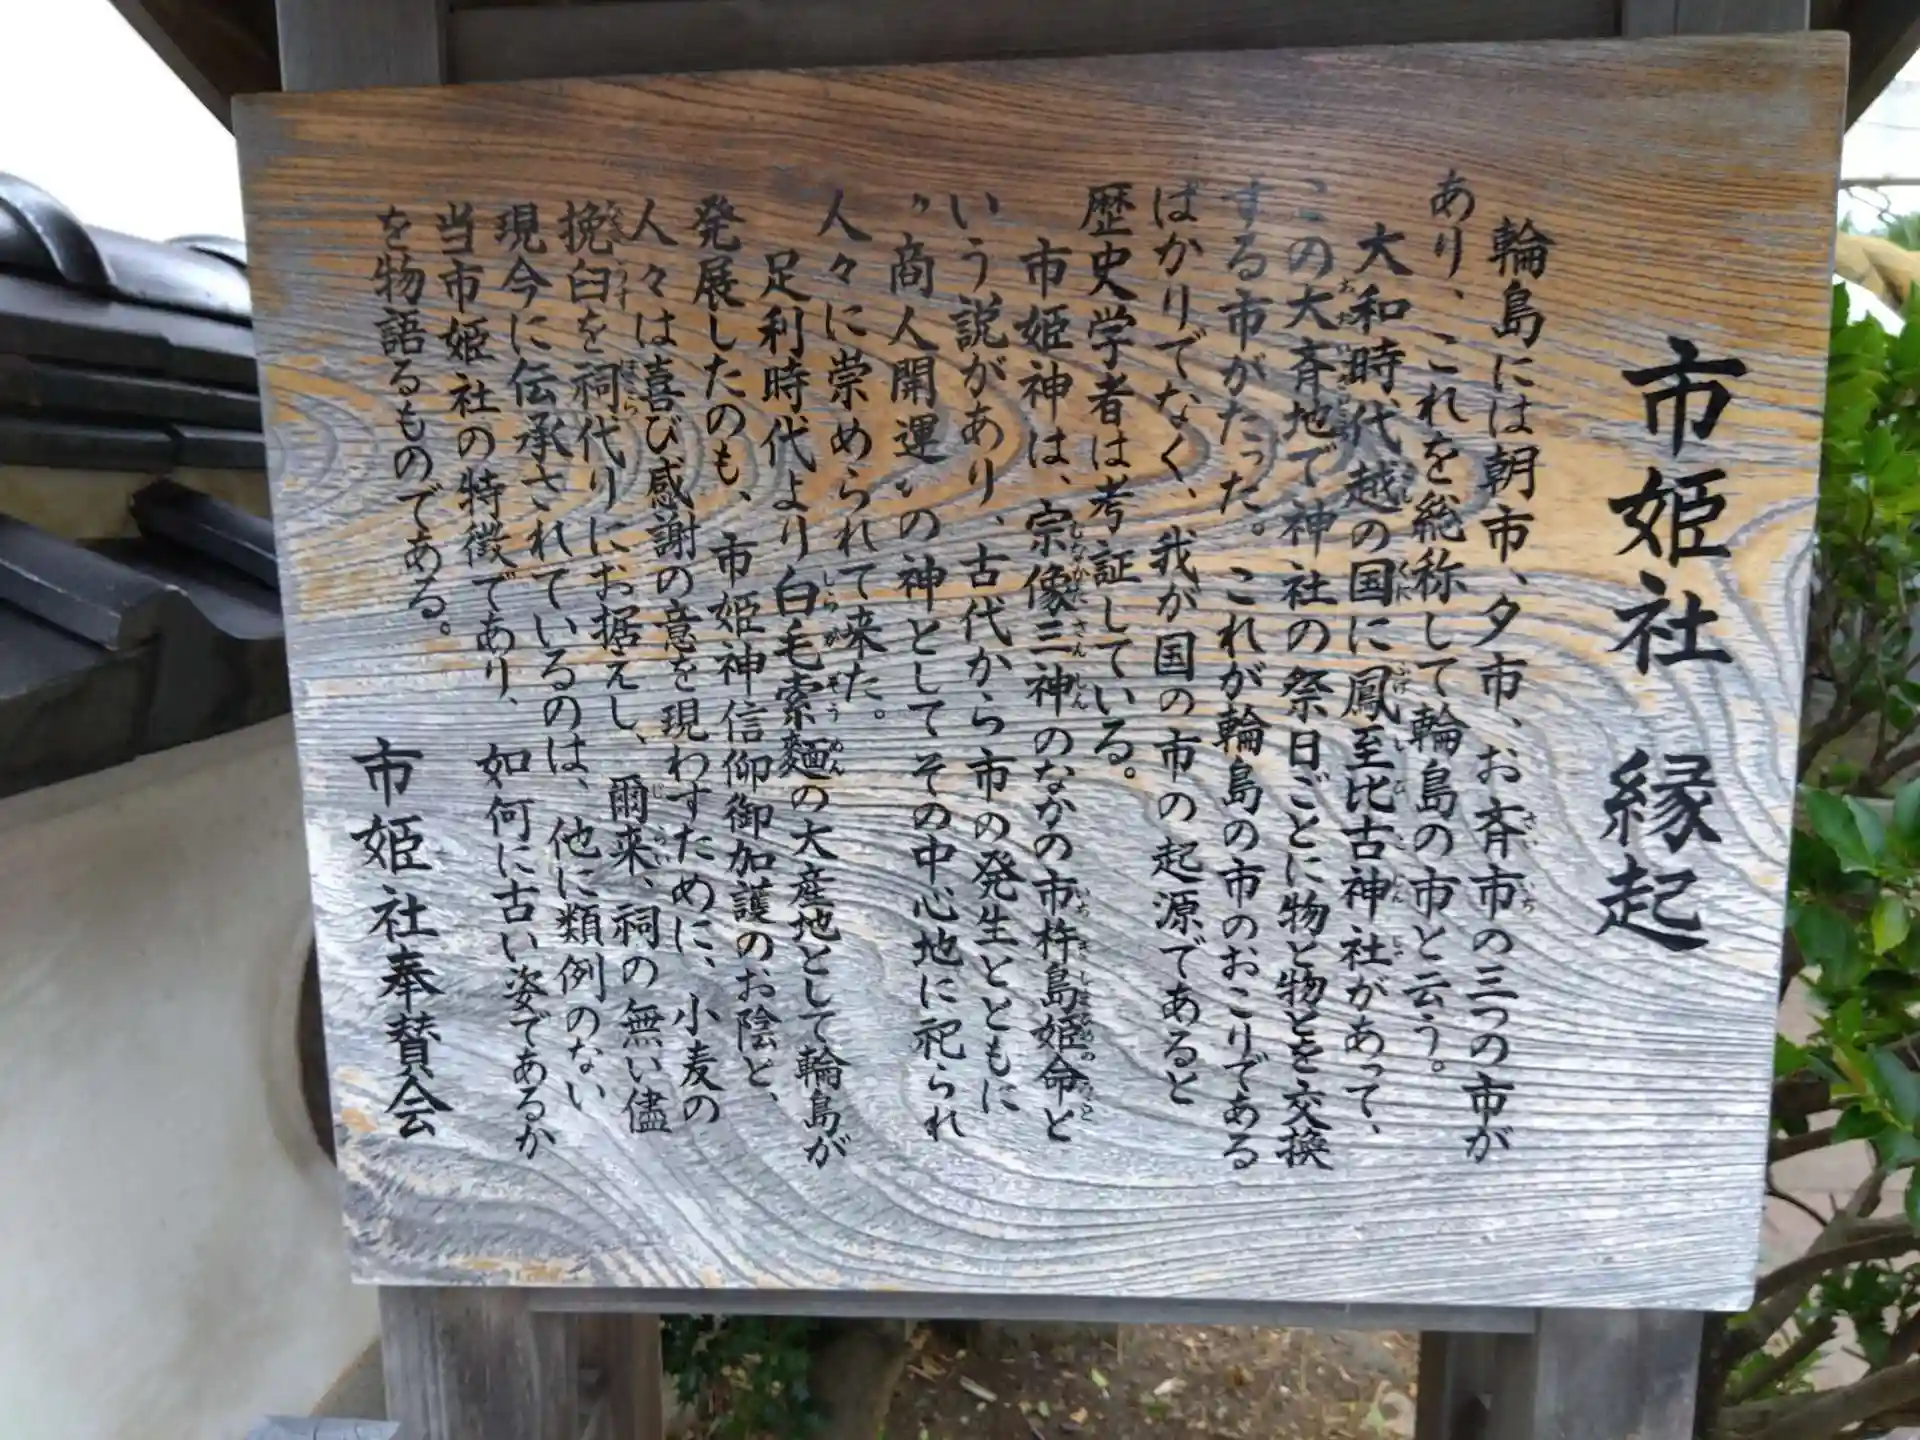 市姫社 縁起
輪島には朝市、夕市、お斉市の三つの市が
あり、これを総称して輪島の市と云う。
大和時代越の国に鳳至比古神社があって、
この大斉地で神社の祭日ごとに物と物とを交換
する市がたった。これが輪島の市のおこりである
ばかりでなく、我が国の市の起源であると
歴史学者は考証している。
市姫神は、宗像三神のなかの市杵島姫命と
いう説があり、古代から市の発生とともに
〝商人開運〟の神としてその中心地に祀られ
人々に崇められて来た。
足利時代より白毛索麺の大産地として輪島が
発展したのも、市姫神信仰御加護のお陰と、
人々は喜び感謝の意を現わすために、小麦の
挽臼を祠代りにお据えし、爾来、祠の無い儘
現今に伝承されているのは、他に類例のない
当市姫社の特徴であり、如何に古い姿であるか
を物語るものである。
市姫社奉賛会